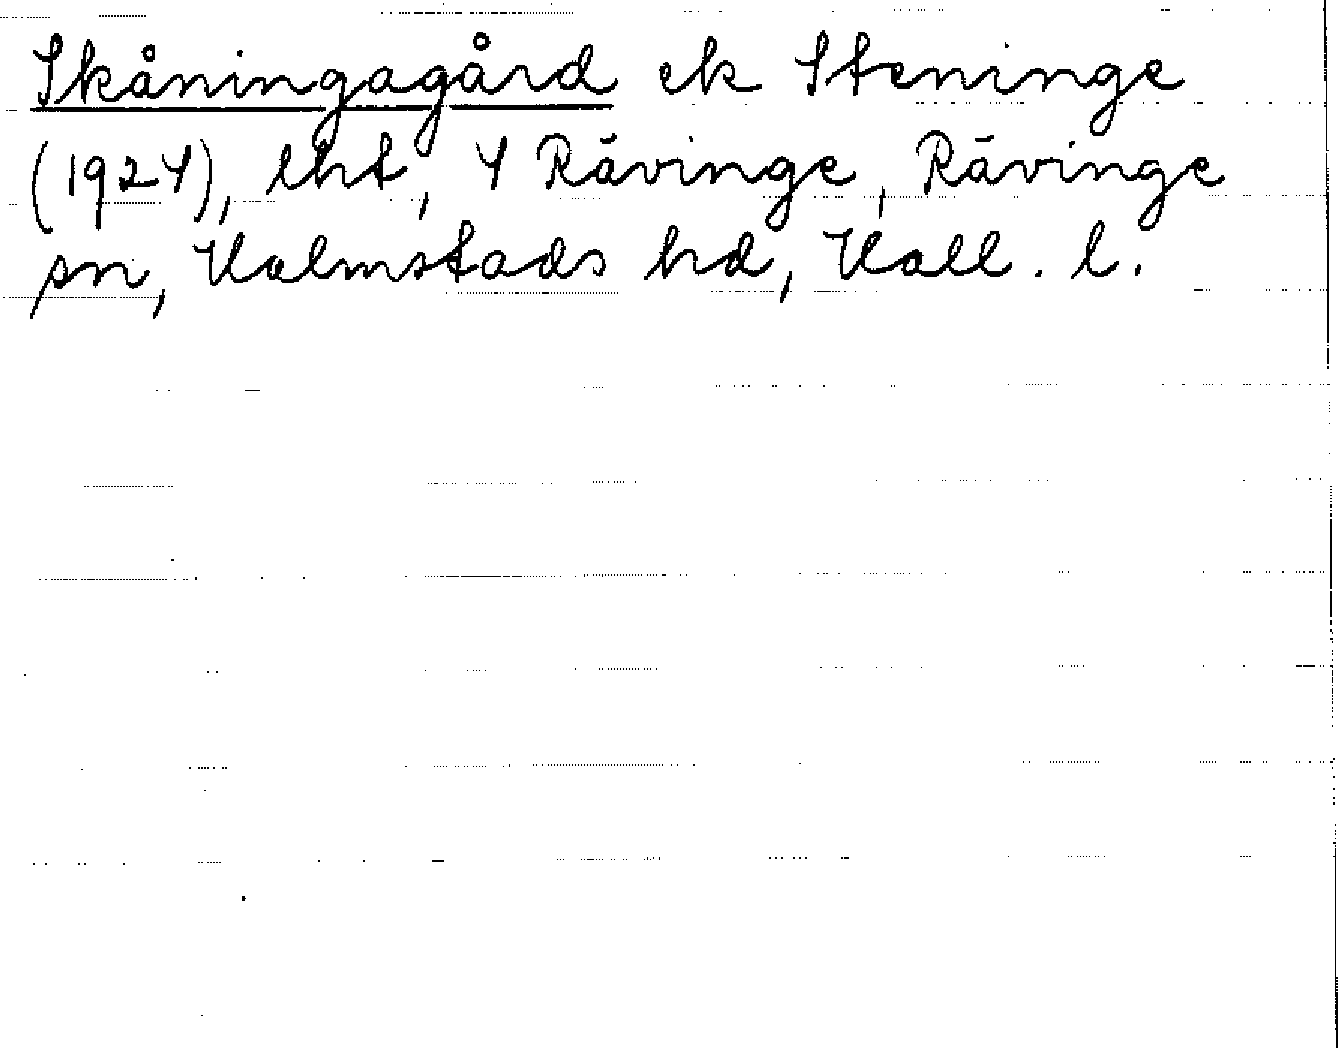 Skåningagård ek Steninge
(1924), lht, 4 Rävinge, Rävinge
sn, Halmstads hd, Hall. l.